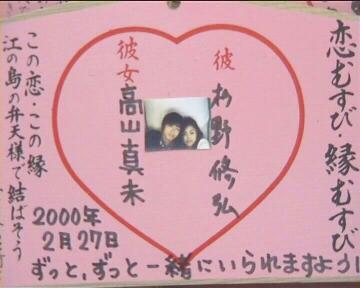 恋むすび・縁むすび
彼 杉野修弘
彼女 高山真未
この恋・この縁
江の島の弁天様で結ばそう
2000年
2月27日
ずっと、ずっと一緒にいられますように